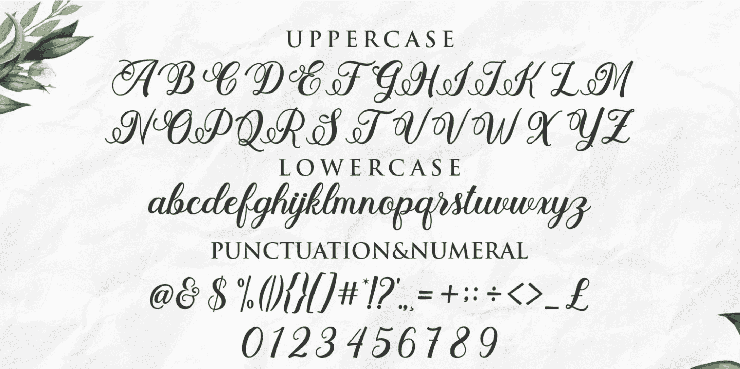 UPPERCASE
ABCDEFGHIJKLM
NOPQRSTUVWXYZ
LOWERCASE
abcdefghijklmnopqrstuvwxyz
PUNCTUATION&NUMERAL
@&$%(){}[]#*!?'.,;=+;:÷<>_£
0123456789